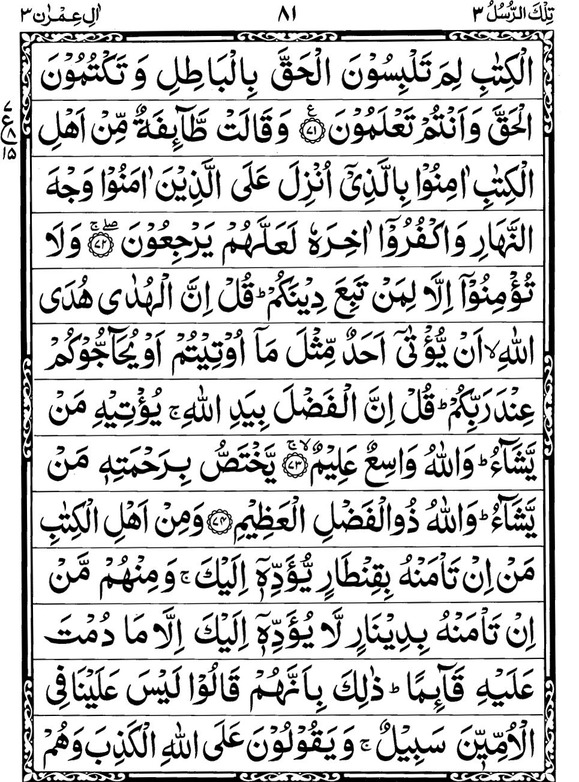 تِلْكَ الرُّسُلُ ٣ ٨١ اٰلِ عِمْرٰن ٣
الْكِتٰبِ لِمَ تَلْبِسُوْنَ الْحَقَّ بِالْبَاطِلِ وَ تَكْتُمُوْنَ
الْحَقَّ وَاَنْتُمْ تَعْلَمُوْنَ ؑ ﴿۷۱﴾ وَقَالَتْ طَّآئِفَةٌ مِّنْ اَهْلِ
٧
ع ٨
١٥
الْكِتٰبِ اٰمِنُوْا بِالَّذِيْۤ اُنْزِلَ عَلَى الَّذِيْنَ اٰمَنُوْا وَجْهَ
النَّهَارِ وَاكْفُرُوْۤا اٰخِرَهٗ لَعَلَّهُمْ يَرْجِعُوْنَ ۖۚ ﴿۷۲﴾ وَلَا
تُؤْمِنُوْۤا اِلَّا لِمَنْ تَبِعَ دِيْنَكُمْ ؕ قُلْ اِنَّ الْهُدٰى هُدَى
اللّٰهِ ۙ اَنْ يُّؤْتٰۤى اَحَدٌ مِّثْلَ مَاۤ اُوْتِيْتُمْ اَوْ يُحَآجُّوْكُمْ
عِنْدَ رَبِّكُمْ ؕ قُلْ اِنَّ الْفَضْلَ بِيَدِ اللّٰهِ ۚ يُؤْتِيْهِ مَنْ
يَّشَآءُ ؕ وَاللّٰهُ وَاسِعٌ عَلِيْمٌ ۙۚ ﴿۷۳﴾ يَّخْتَصُّ بِرَحْمَتِهٖ مَنْ
يَّشَآءُ ؕ وَاللّٰهُ ذُو الْفَضْلِ الْعَظِيْمِ ﴿۷۴﴾ وَمِنْ اَهْلِ الْكِتٰبِ
مَنْ اِنْ تَاْمَنْهُ بِقِنْطَارٍ يُّؤَدِّهٖۤ اِلَيْكَ ۚ وَمِنْهُمْ مَّنْ
اِنْ تَاْمَنْهُ بِدِيْنَارٍ لَّا يُؤَدِّهٖۤ اِلَيْكَ اِلَّا مَا دُمْتَ
عَلَيْهِ قَآئِمًا ؕ ذٰلِكَ بِاَنَّهُمْ قَالُوْا لَيْسَ عَلَيْنَا فِى
الْاُمِّيّٖنَ سَبِيْلٌ ۚ وَ يَقُوْلُوْنَ عَلَى اللّٰهِ الْكَذِبَ وَهُمْ